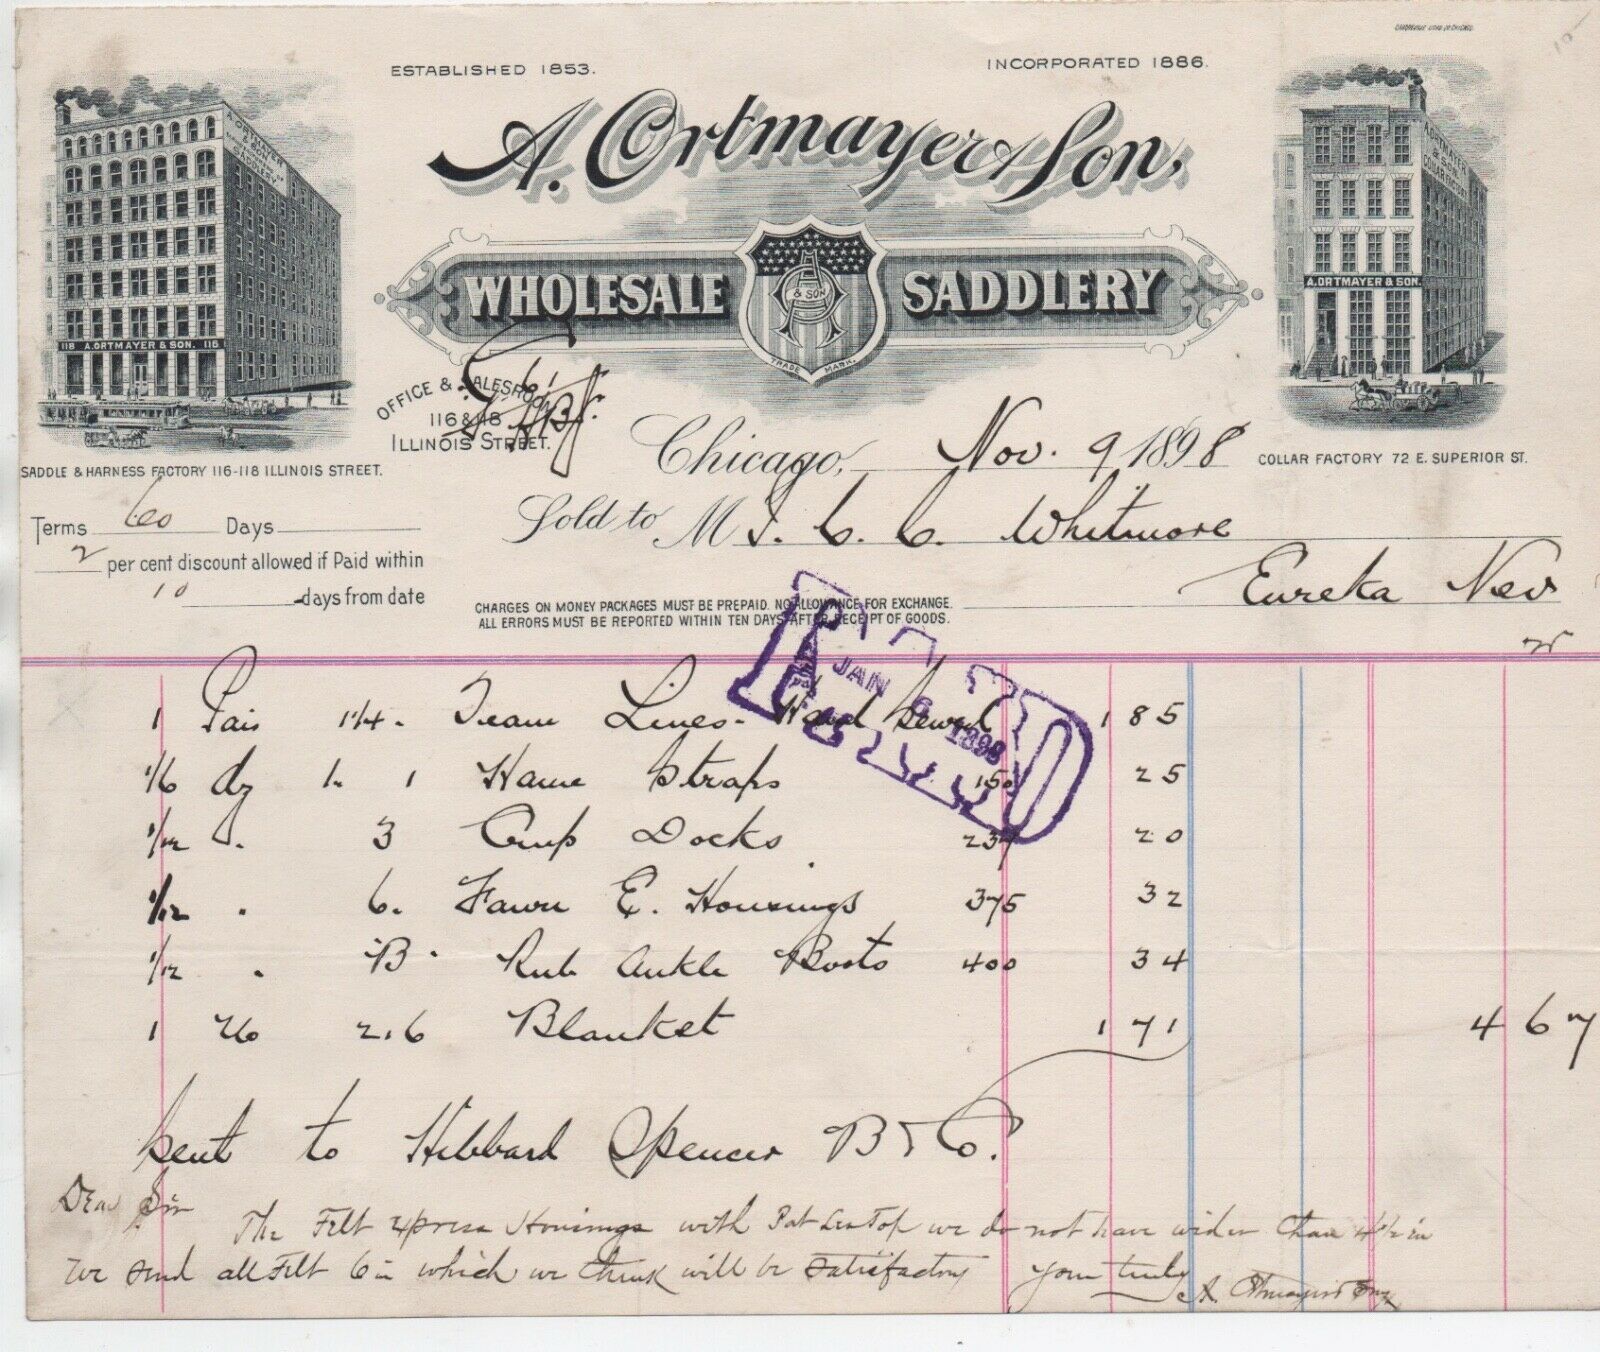 ESTABLISHED 1853.
INCORPORATED 1886.
A. Ortmayer & Son,
WHOLESALE SADDLERY
& SON
TRADE MARK.
A. ORTMAYER & SON SADDLERY
118 A. ORTMAYER & SON. 116
A. ORTMAYER & SON
A. ORTMAYER & SON.
OFFICE & SALESROOM
116 & 118
ILLINOIS STREET.
SADDLE & HARNESS FACTORY 116-118 ILLINOIS STREET.
COLLAR FACTORY 72 E. SUPERIOR ST.
Chicago, Nov. 9 1898
Terms 60 Days
2 per cent discount allowed if Paid within
10 days from date
Sold to M J. C. C. Whitmore
Eureka Nev
CHARGES ON MONEY PACKAGES MUST BE PREPAID. NO ALLOWANCE FOR EXCHANGE.
ALL ERRORS MUST BE REPORTED WITHIN TEN DAYS AFTER RECEIPT OF GOODS.
PAID
JAN 1899
1 Pair 1 1/4. Team Lines. Hand Sewed 1 85
1/6 dz 1. 1 Hame Straps 150 25
1/12 . 3 Crup Docks. 237 20
1/12 . 6. Fawn E. Housings 375 32
1/12 . B. Rub Ankle Boots 400 34
1 No 216 Blanket 1 71 4 67
Sent to Hibbard Spencer B & Co.
Dear Sir
The Felt Xpress Housings with Pat Lea Top we do not have wider than 4 1/2 in
We send all Felt 6 in which we think will be satisfactory Your truly
A. Ortmayer & Son